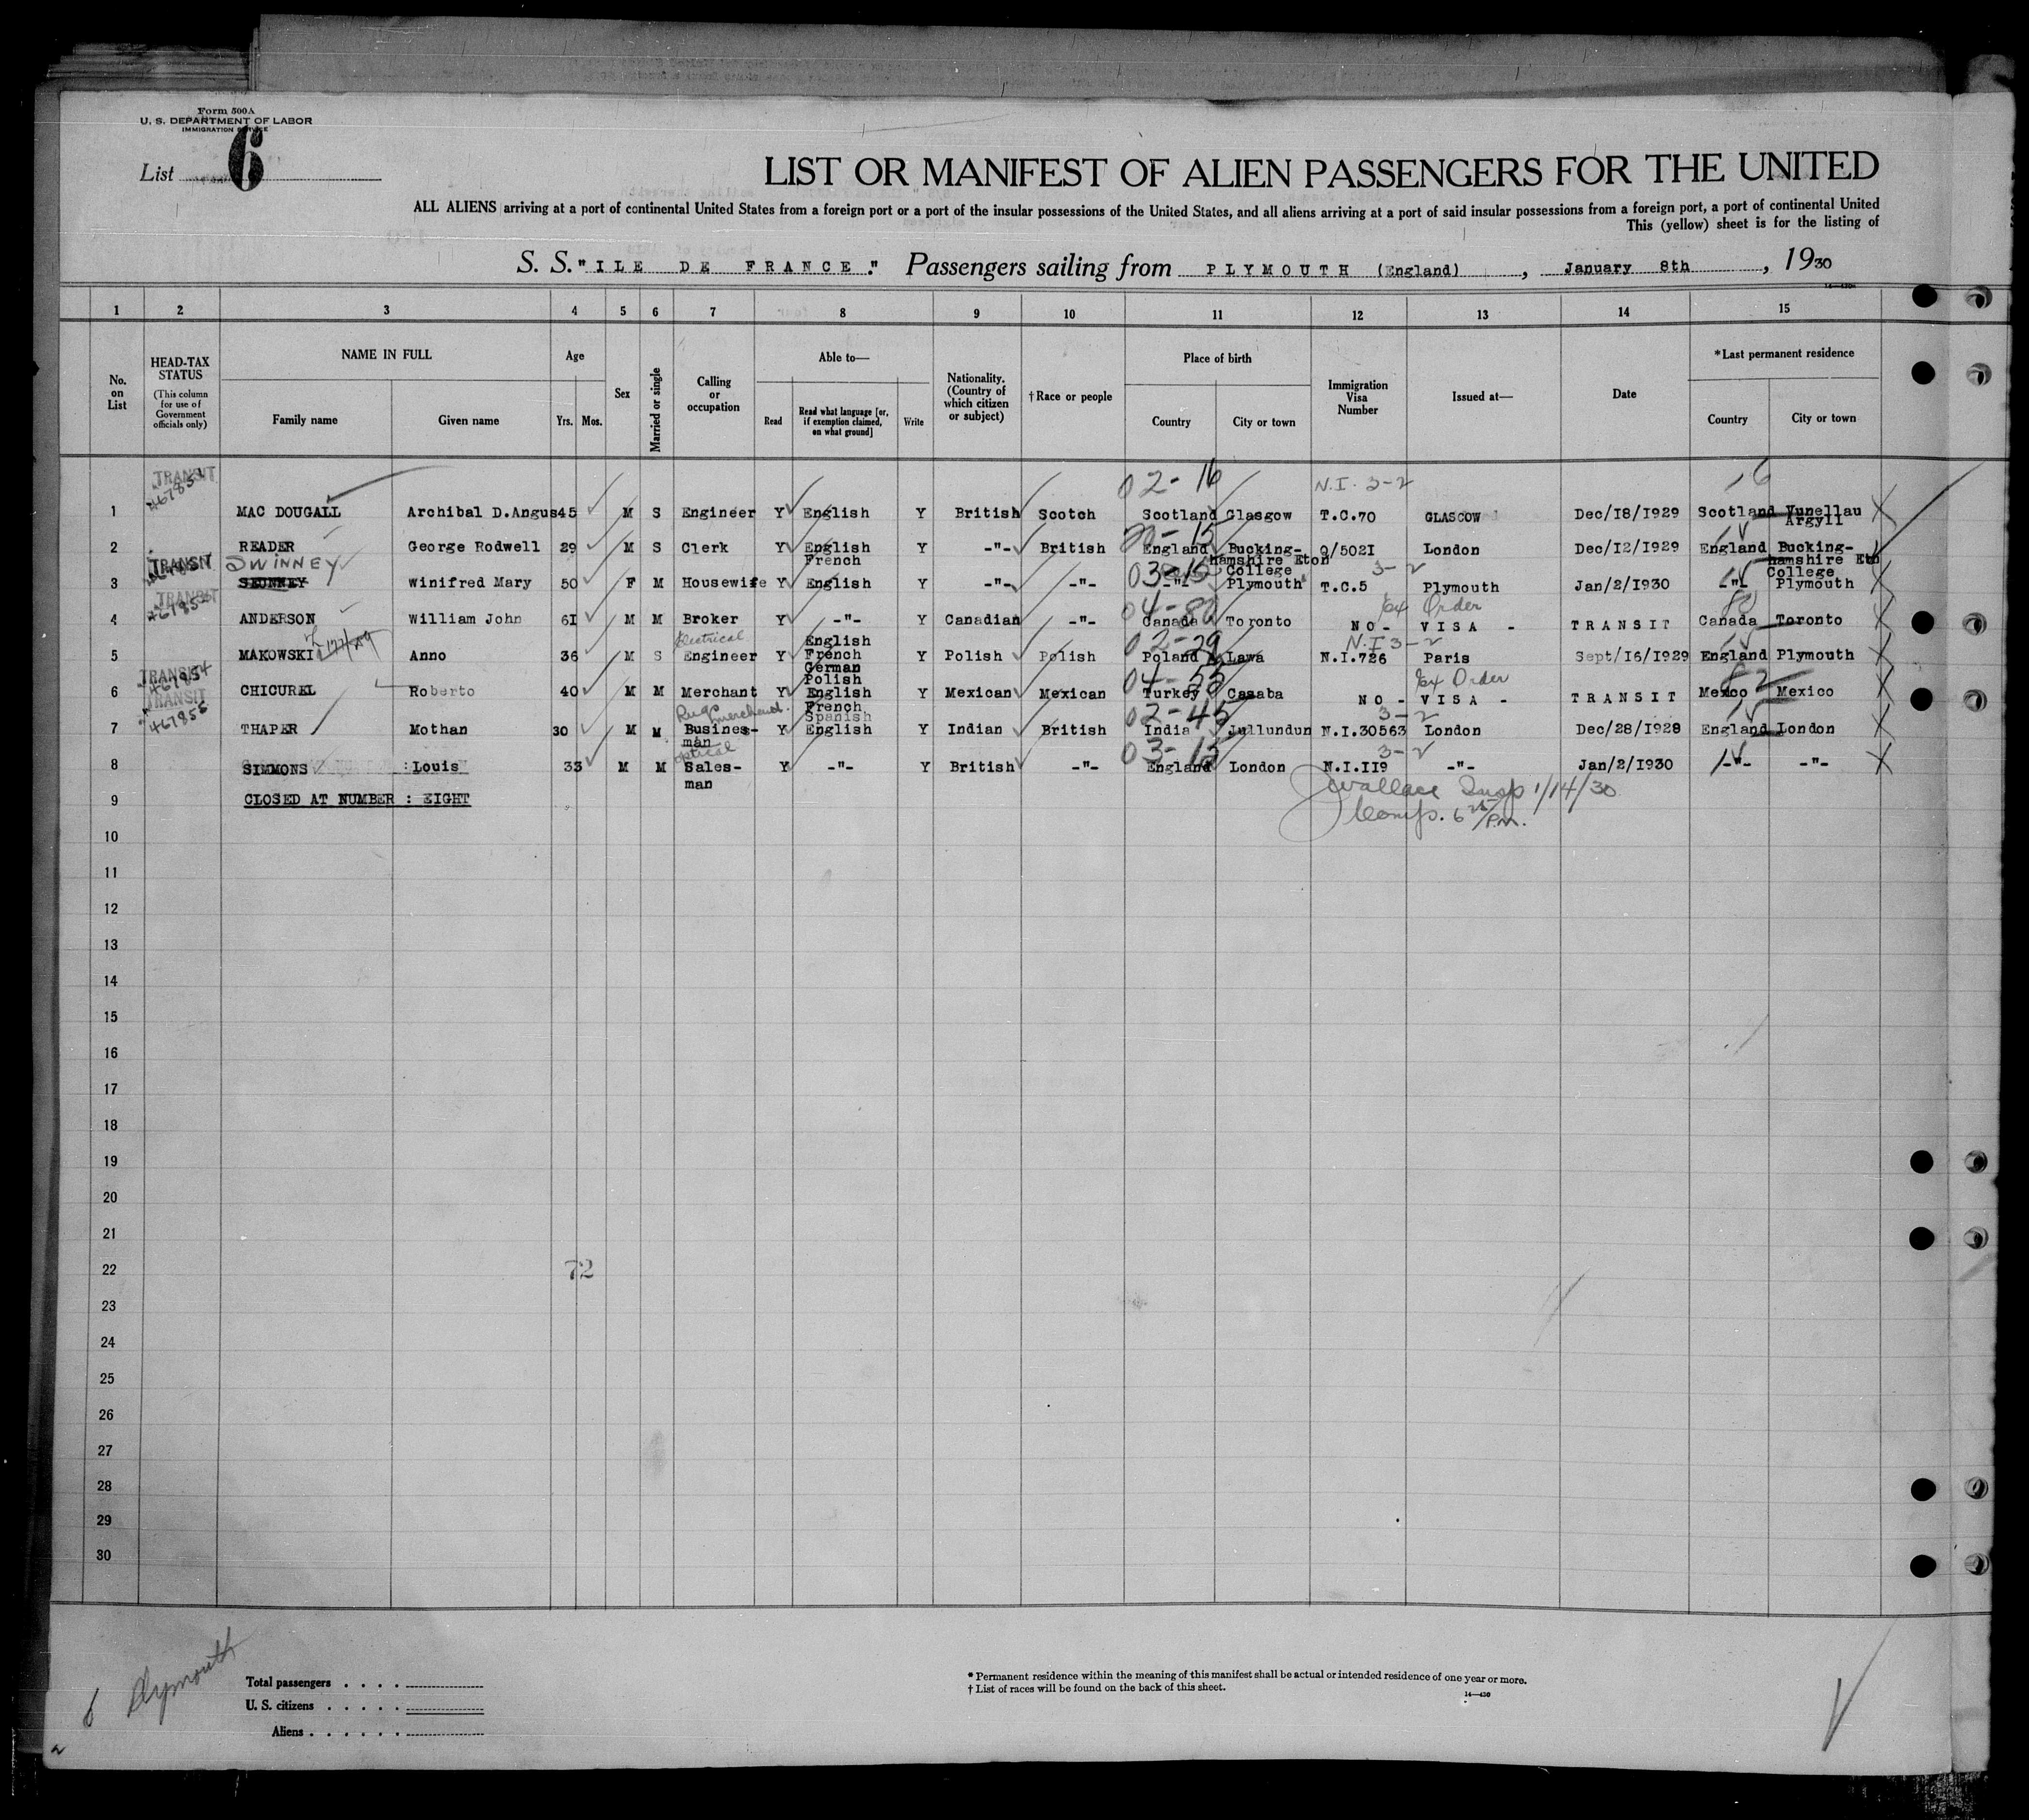 Form 500A
U. S. DEPARTMENT OF LABOR
IMMIGRATION SERVICE
List 6
LIST OR MANIFEST OF ALIEN PASSENGERS FOR THE UNITED
ALL ALIENS arriving at a port of continental United States from a foreign port or a port of the insular possessions of the United States, and all aliens arriving at a port of said insular possessions from a foreign port, a port of continental United
This (yellow) sheet is for the listing of
S. S. "ILE DE FRANCE." Passengers sailing from PLYMOUTH (England), January 8th, 1930
1 2 3 4 5 6 7 8 9 10 11 12 13 14 15
No. on List
HEAD-TAX STATUS
(This column for use of Government officials only)
NAME IN FULL
Family name Given name
Age
Yrs. Mos.
Sex
Married or single
Calling or occupation
Able to—
Read Read what language [or, if exemption claimed, on what ground] Write
Nationality. (Country of which citizen or subject)
†Race or people
Place of birth
Country City or town
Immigration Visa Number
Issued at—
Date
*Last permanent residence
Country City or town
TRANSIT 02-16 N.I. 3-2 16
1 MAC DOUGALL Archibal D.Angus 45 M S Engineer Y English Y British Scotch Scotland Glasgow T.C.70 GLASCOW Dec/18/1929 Scotland Argyll
2 READER George Rodwell 29 M S Clerk Y English French Y -"- British England Bucking-hamshire Eton College Q/502I London Dec/I2/1929 England Bucking-hamshire Eton College
TRANSIT SWINNEY 03-15 3-2
3 Winifred Mary 50 F M Housewife Y English Y -"- -"- -"- Plymouth T.C.5 Plymouth Jan/2/1930 -"- Plymouth
TRANSIT 46785 04-80 Ex Order
4 ANDERSON William John 6I M M Broker Y -"- Y Canadian -"- Canada Toronto NO - VISA - TRANSIT Canada Toronto
Electrical 02-29 N.I 3-2
5 MAKOWSKI Anno 36 M S Engineer Y English French German Polish Y Polish Polish Poland Lawa N.I.726 Paris Sept/16/1929 England Plymouth
TRANSIT 467854 04-55 Ex Order 82
6 CHICUREL Roberto 40 M M Merchant Y English French Spanish Y Mexican Mexican Turkey Casaba NO - VISA - TRANSIT Mexico Mexico
TRANSIT 467855 Rugs merchand. 02-45 3-2
7 THAPER Mothan 30 M M Busines-man Y English Y Indian British India Jullundun N.I.30563 London Dec/28/1928 England London
optical 03-15 3-2
8 SIMMONS :Louis 33 M M Sales-man Y -"- Y British -"- England London N.I.II9 -"- Jan/2/1930 -"- -"-
9 CLOSED AT NUMBER : EIGHT
Wallace Insp 1/14/30
Comp. 6 25/P.M.
10
11
12
13
14
15
16
17
18
19
20
21
22 72
23
24
25
26
27
28
29
30
Plymouth
Total passengers
U. S. citizens
Aliens
* Permanent residence within the meaning of this manifest shall be actual or intended residence of one year or more.
† List of races will be found on the back of this sheet.
14—430